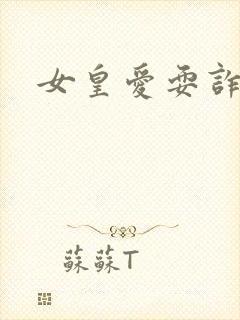 女皇愛耍詐
蘇蘇T